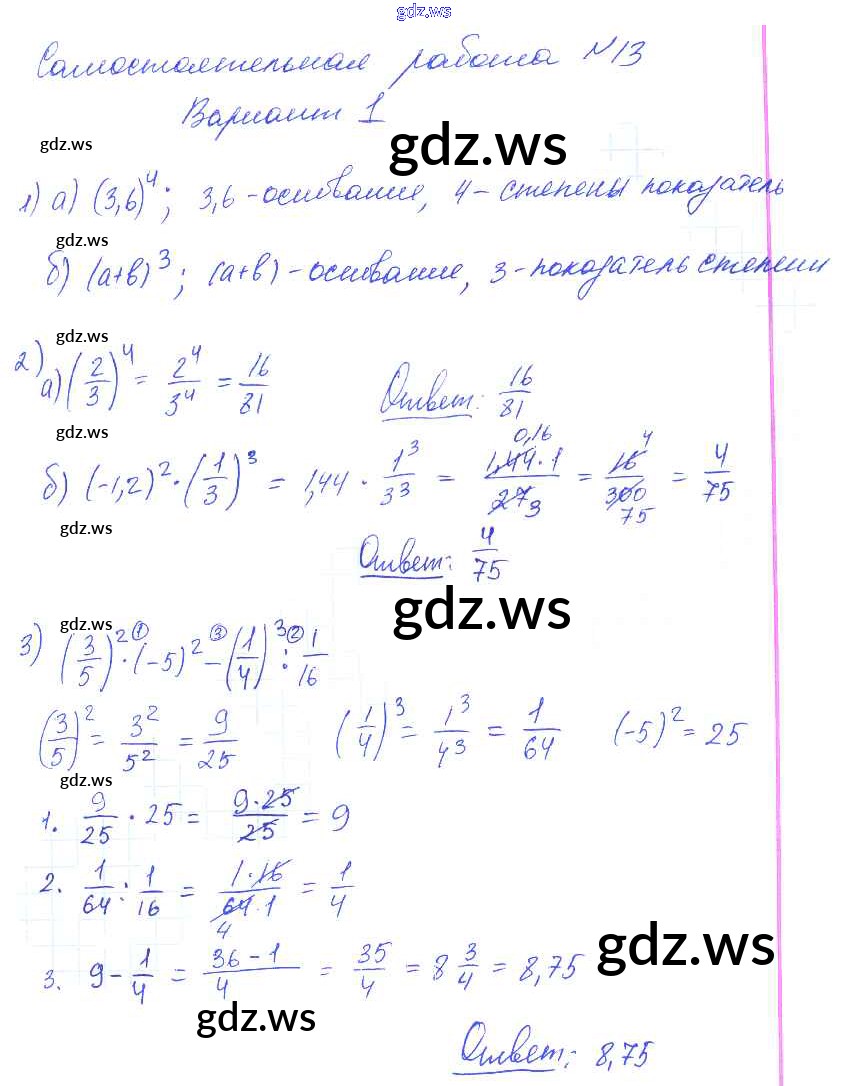 gdz.ws
Самостоятельная работа №13
Вариант 1
gdz.ws
gdz.ws
1) а) (3,6)⁴; 3,6 - основание, 4 - степены показатель
gdz.ws
б) (a+b)³; (a+b) - основание, 3 - показатель степени
gdz.ws
2) а) (2/3)⁴ = 2⁴/3⁴ = 16/81 Ответ: 16/81
gdz.ws
б) (-1,2)² · (1/3)³ = 1,44 · 1³/3³ = 1,44 · 1/27 = 16/300 = 4/75
0,16 3 4 75
gdz.ws
Ответ: 4/75
gdz.ws
gdz.ws
3) (3/5)² ① · (-5)² ③ - (1/4)³ ② : 1/16
(3/5)² = 3²/5² = 9/25 (1/4)³ = 1³/4³ = 1/64 (-5)² = 25
gdz.ws
1. 9/25 · 25 = 9·25/25 = 9
2. 1/64 : 1/16 = 1·16/64·1 = 1/4
4
3. 9 - 1/4 = 36-1/4 = 35/4 = 8 3/4 = 8,75
gdz.ws
gdz.ws
Ответ: 8,75